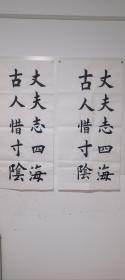 丈夫志四海
古人惜寸陰
丈夫志四海
古人惜寸陰